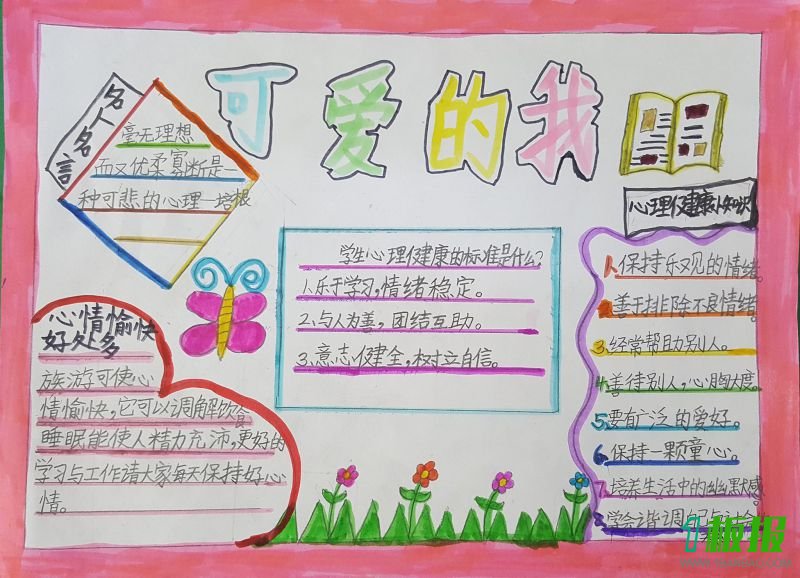 可爱的我
名人名言
毫无理想
而又优柔寡断是一
种可悲的心理—培根
心理健康小知识
学生心理健康的标准是什么?
1.乐于学习,情绪稳定。
2.与人为善,团结互助。
3.意志健全,树立自信。
1.保持乐观的情绪。
2.善于排除不良情绪
3.经常帮助别人。
4.善待别人,心胸大度。
5.要有广泛的爱好。
6.保持一颗童心。
7.培养生活中的幽默感
学会协调自己与
心情愉快
好处多
旅游可使心
情愉快,它可以调解饮食
睡眠能使人精力充沛,更好的
学习与工作请大家每天保持好心
情。
板报